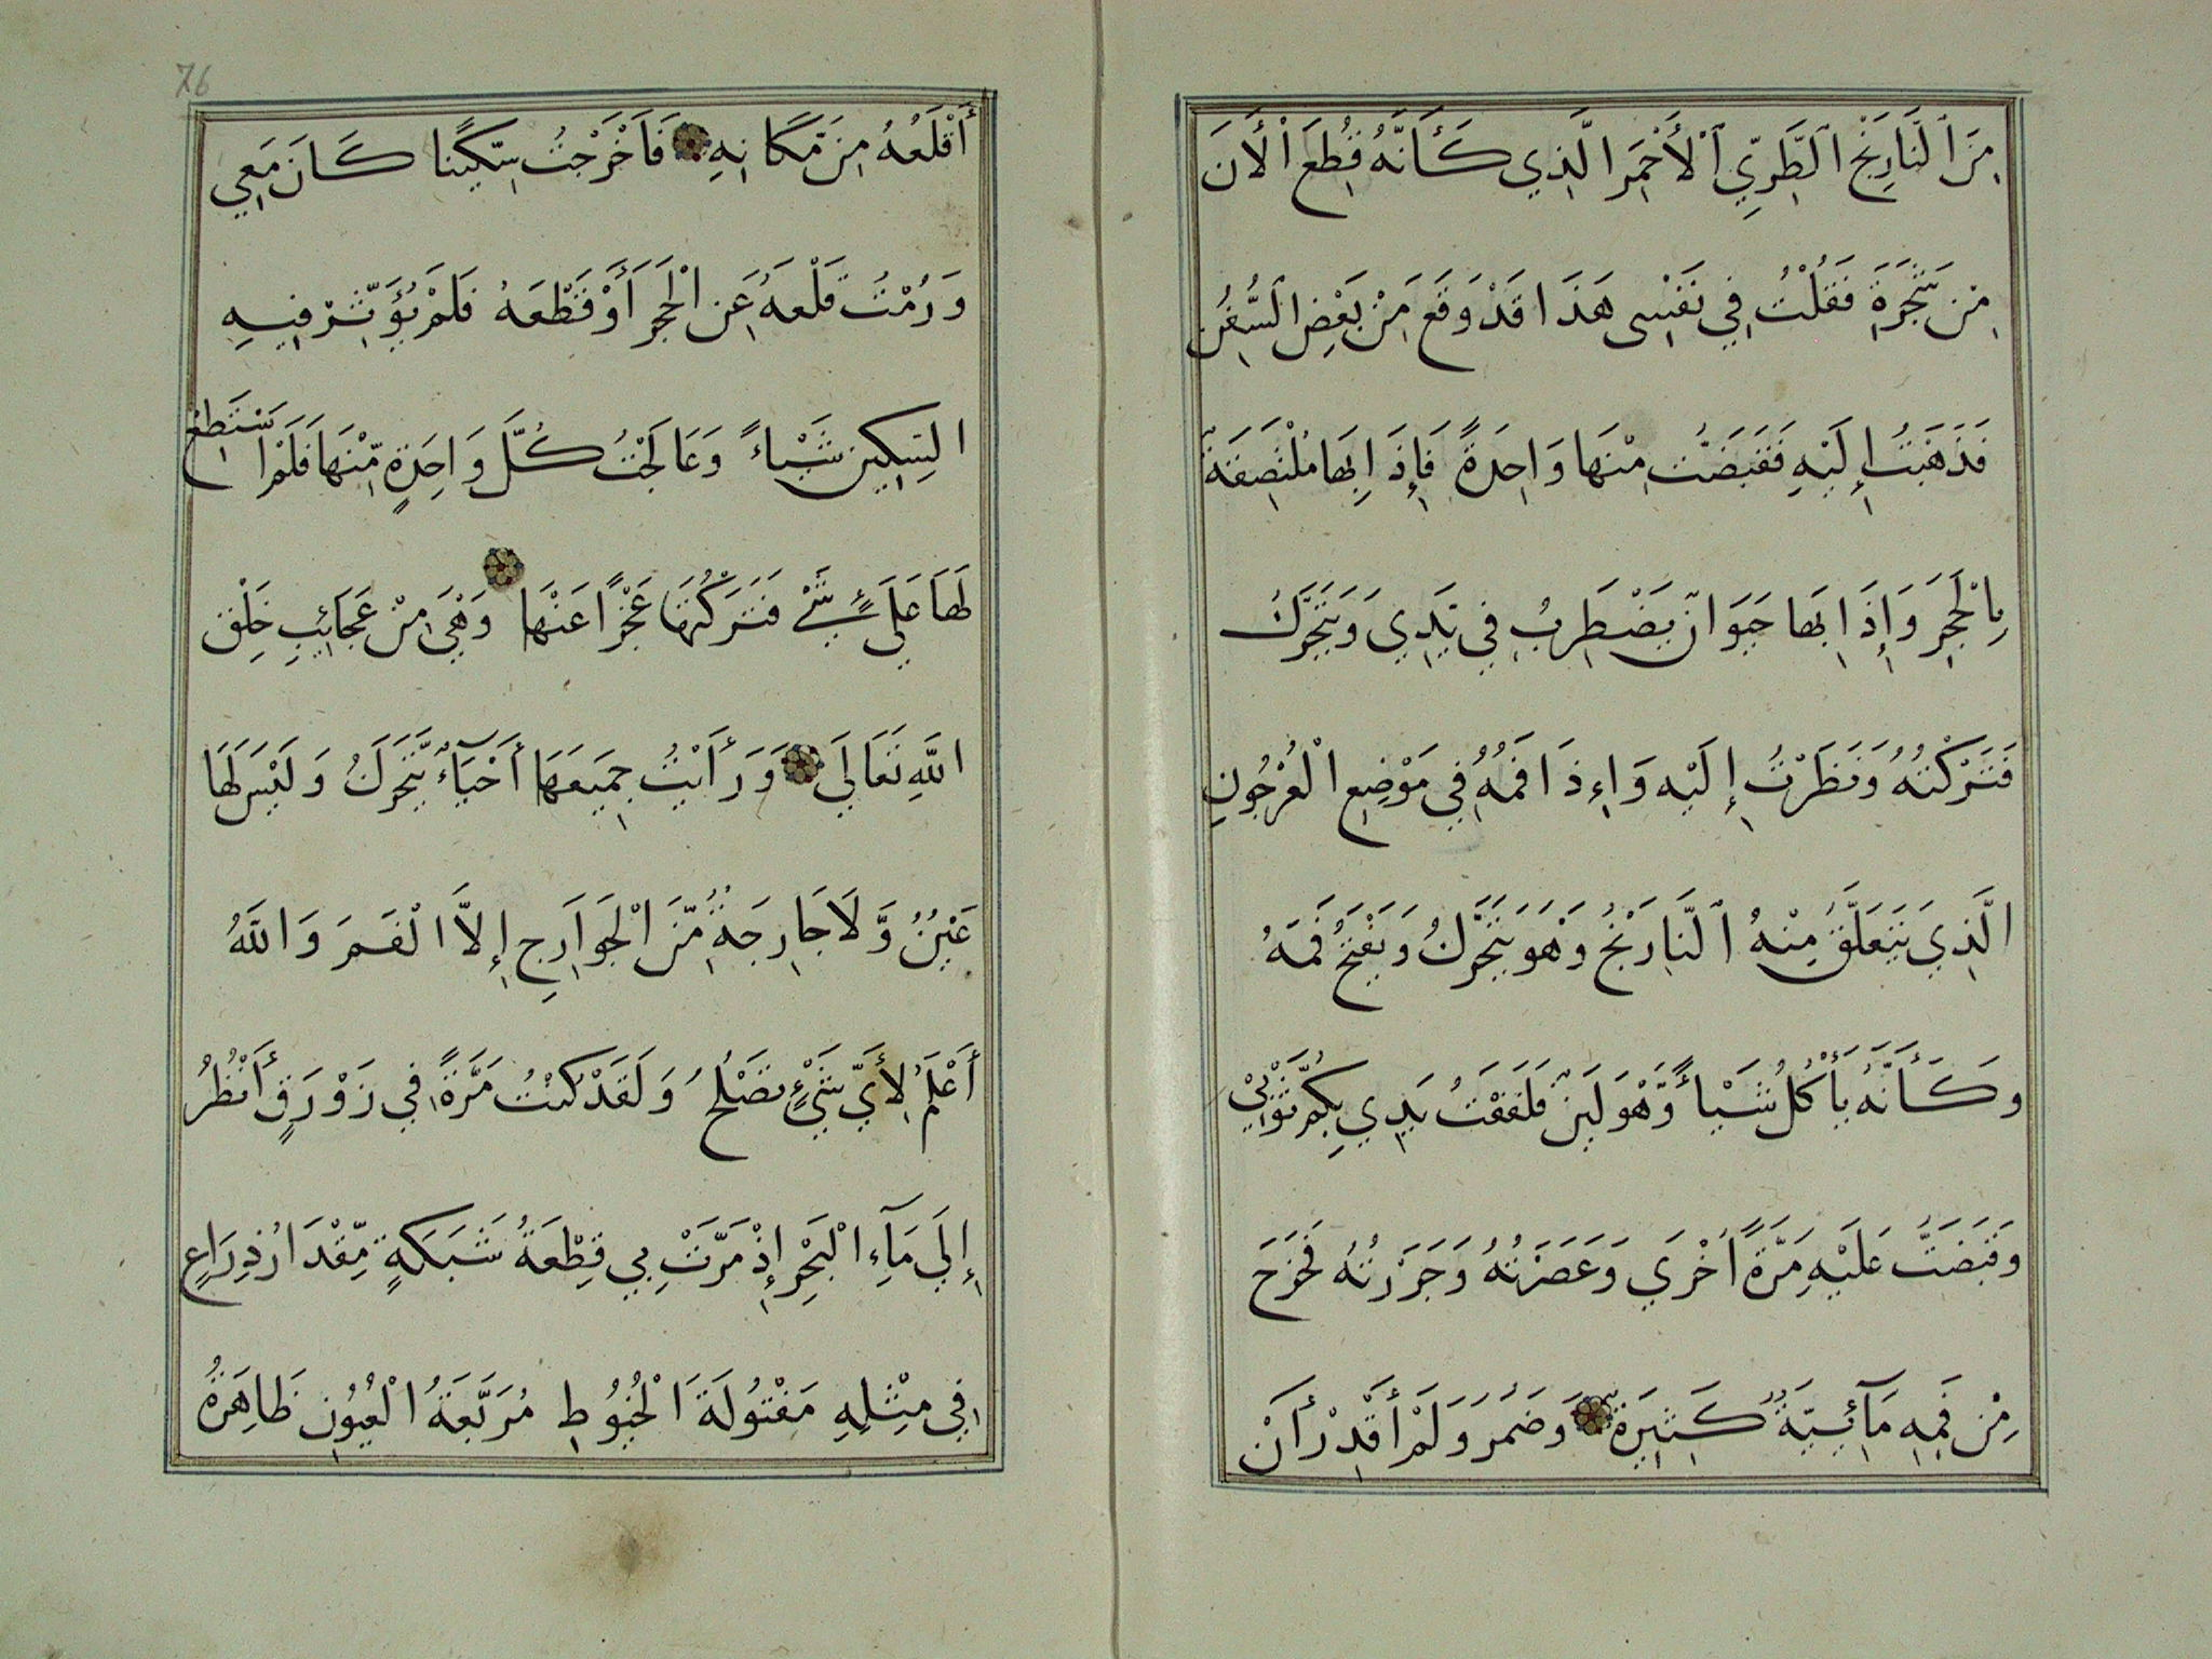 مِنَ ٱلنَّارِنْجِ ٱلطَّرِيِّ ٱلْأَحْمَرِ الَّذِي كَأَنَّهُ قُطِعَ الْأَنَ
مِنْ شَجَرَةٍ فَقُلْتُ فِي نَفْسِى هَذَا قَدْ وَقَعَ مِنْ بَعْضِ السُّفُنِ
فَذَهَبْتُ إِلَيْهِ فَقَبَضْتُ مِنْهَا وَاحِدَةً فَإِذَا بِهَا مُلْتَصِقَةٌ
بِالْحَجَرِ وَإِذَا بِهَا حَيَوَانٌ يَضْطَرِبُ فِي يَدِي وَيَتَحَرَّكُ
فَتَرَكْتُهُ وَنَظَرْتُ إِلَيْهِ وَإِذَا فَمُهُ فِي مَوْضِعِ الْعُرْجُونِ
الَّذِي يَتَعَلَّقُ مِنْهُ ٱلنَّارَنْجُ وَهُوَ يَتَحَرَّكُ وَيَفْتَحُ فَمَهُ
وَكَأَنَّهُ يَأْكُلُ شَيْأً وَّهُوَ لَيِّنٌ فَلَفَفْتُ يَدِي بِكُمِّ ثَوْبِيْ
وَقَبَضْتُ عَلَيْهِ مَرَّةً أُخْرَي وَعَصَرْتُهُ وَجَرَرْتُهُ فَخَرَجَ
مِنْ فَمِهِ مَآئِيَّةٌ كَثِيرَةٌ وَضَمُرَ وَلَمْ أَقْدِرْ أَنْ
76
أَقْلَعُهُ مِنْ مَّكَانِهِ فَاَخْرَجْتُ سِكِّينًا كَانَ مَعِي
وَرُمْتُ قَلْعَهُ عَنِ الْحَجَرِ أَوْ قَطْعَهُ فَلَمْ يُؤَثِّرْ فِيهِ
السِّكِينُ شَيْاءً وَعَالَجْتُ كُلَّ وَاحِدَةٍ مِّنْهَا فَلَمْ اسْتَطِعْ
لَهَا عَلَي شَيْءٍ فَتَرَكْتُهَا عَجْزًا عَنْهَا وَهْيَ مِنْ عَجَائِبِ خَلْقِ
اللَّهِ تَعَالَي وَرَأَيْتُ جَمِيعَهَا أَحْيَآءٌ يَتَحَرَكُ وَلَيْسَ لَهَا
عَيْنٌ وَّلَا جَارِحَةٌ مِّنَ الْجَوَارِحِ إِلَّا الْفَمَ وَاللَّهُ
أَعْلَمُ لِأَيِّ شَيْءٍ تَصْلُحُ وَلَقَدْ كُنْتُ مَرَّةً فِي زَوْرَقٍ أَنْظُرُ
إِلَي مَآءِ الْبَحْرِ إِذْ مَرَّتْ بِي قِطْعَةُ شَبَكَةٍ مِّقْدَارُ ذِرَاعٍ
فِي مِثْلِهِ مَفْتُولَةَ الْخُيُوطِ مُرَبَّعَةُ الْعُيُونِ ظَاهِرَةُ